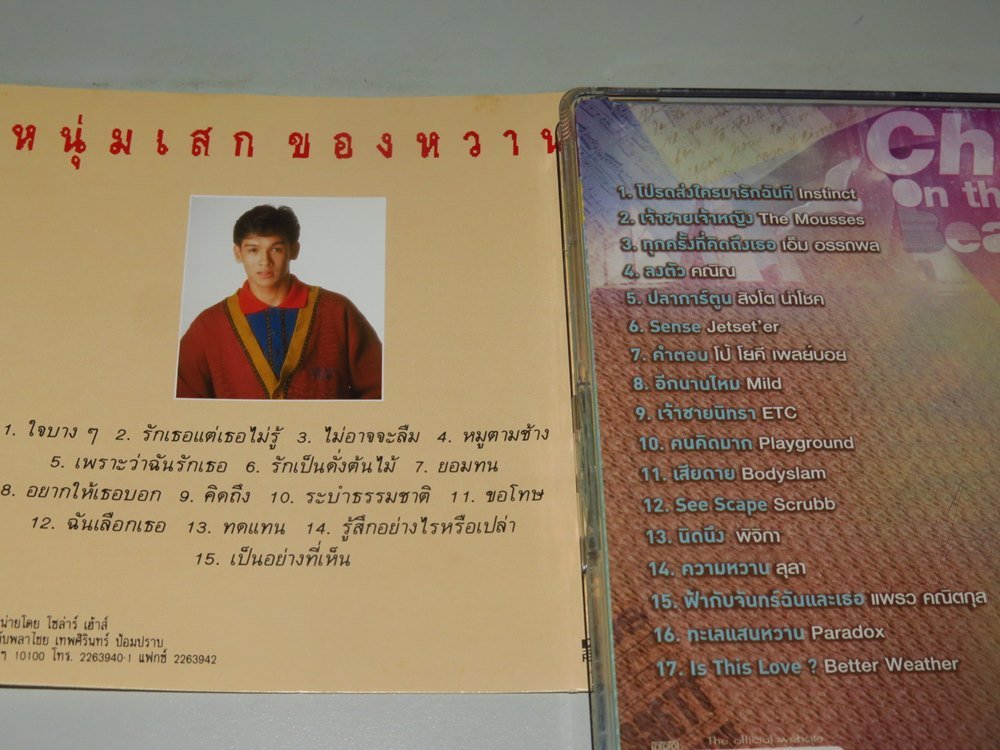 หนุ่มเสก ของหวาน
1. ใจบาง ๆ 2. รักเธอแต่เธอไม่รู้ 3. ไม่อาจจะลืม 4. หมูตามช้าง
5. เพราะว่าฉันรักเธอ 6. รักเป็นดั่งต้นไม้ 7. ยอมทน
8. อยากให้เธอบอก 9. คิดถึง 10. ระบำธรรมชาติ 11. ขอโทษ
12. ฉันเลือกเธอ 13. ทดแทน 14. รู้สึกอย่างไรหรือเปล่า
15. เป็นอย่างที่เห็น
น่ายโดย โซล่าร์ เฮ้าส์
พลาไชย เทพศิรินทร์ ป้อมปราบ
ฯ 10100 โทร. 2263940-1 แฟกซ์ 2263942
Ch
On th
Bea
1. โปรดส่งใครมารักฉันที Instinct
2. เจ้าชายเจ้าหญิง The Mousses
3. ทุกครั้งที่คิดถึงเธอ เอ็ม อรรถพล
4. ลงตัว คณิณ
5. ปลาการ์ตูน สิงโต นำโชค
6. Sense Jetset'er
7. คำตอบ โป้ โยคี เพลย์บอย
8. อีกนานไหม Mild
9. เจ้าชายนิทรา ETC
10. คนคิดมาก Playground
11. เสียดาย Bodyslam
12. See Scape Scrubb
13. นิดนึง พิจิกา
14. ความหวาน ลุลา
15. ฟ้ากับจันทร์ฉันและเธอ แพรว คณิตกุล
16. ทะเลแสนหวาน Paradox
17. Is This Love ? Better Weather
The official website